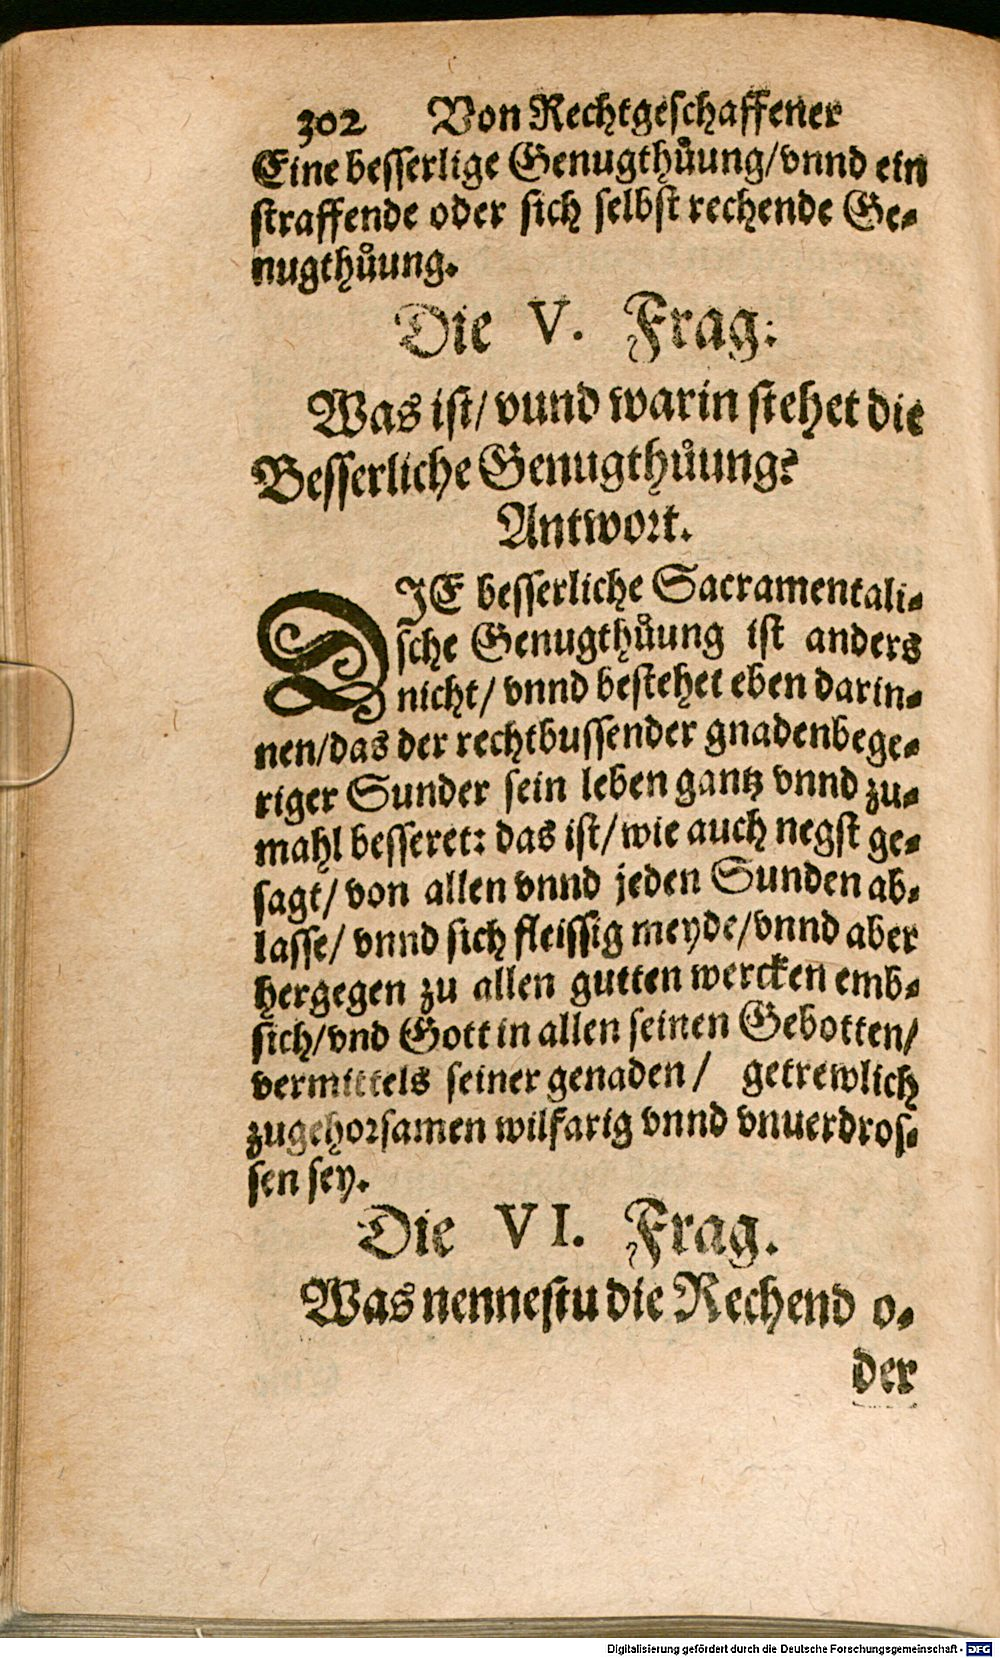 302 Von Rechtgeschaffener
Eine besserlige Genugthůung/vnnd ein
straffende oder sich selbst rechende Ge-
nugthůung.
Die V. Frag:
Was ist/ vund warin stehet die
Besserliche Genugthůung?
Antwort.
DIE besserliche Sacramentali-
sche Genugthůung ist anders
nicht/ vnnd bestehet eben darin-
nen/das der rechtbussender gnadenbege-
riger Sunder sein leben gantz vnnd zu-
mahl besseret: das ist/wie auch negst ge-
sagt/ von allen vnnd jeden Sunden ab-
lasse/ vnnd sich fleissig meyde/vnnd aber
hergegen zu allen gutten wercken emb-
sich/vnd Gott in allen seinen Gebotten/
vermittels seiner genaden/ getrewlich
zugehorsamen wilfarig vnnd vnuerdros-
sen sey.
Die VI. Frag.
Was nennestu die Rechend o-
der
Digitalisierung gefördert durch die Deutsche Forschungsgemeinschaft - DFG